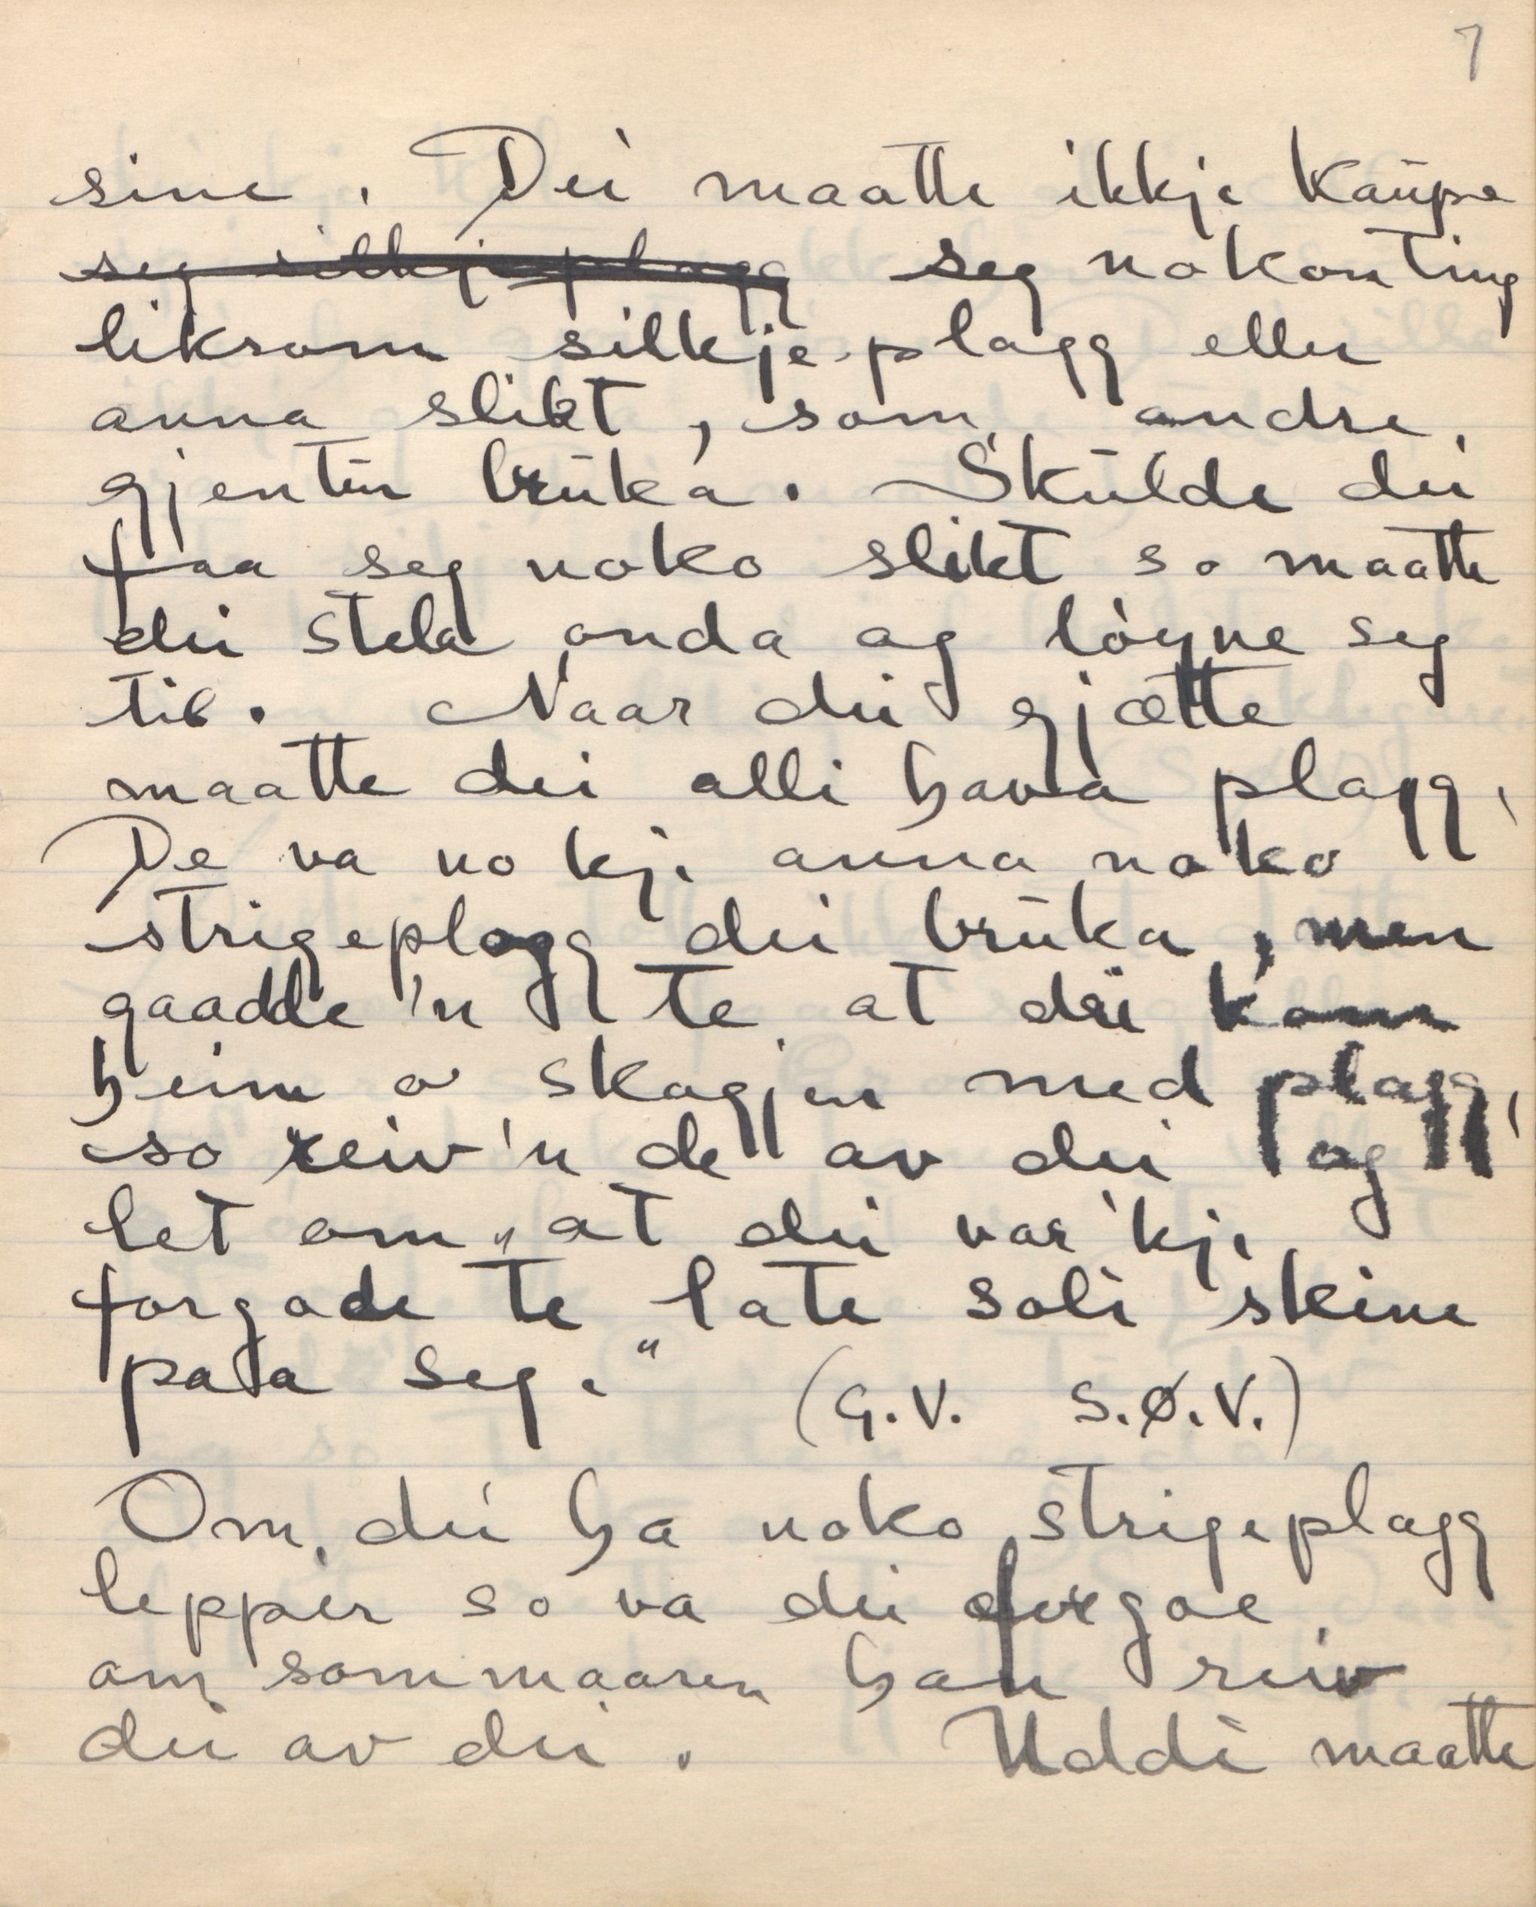 7
sine. Dei maatte ikkje kaupe
seg silkjeplagg seg nokonting
liksom silkjeplagg eller
anna slikt, som andre
gjentur brüka. Skulde dei
faa seg noko slikt so maatte
dei stela onda og løyne seg
til. Naar dei gjætte
maatte dei alli hava plagg,
De va no kje anna noko
strigeplagg dei brüka, men
gaadde 'n te at dei kom
heim or skogjen med plagg,
so reiv 'n de av dei og
let om "at dei var 'kje
forgode te late soli skine
paa seg."
(G.V. S.Ø.V.)
Om dei ha noko strigeplagg
lepper so va dei forgoe
om sommaaren han reiv
dei av dei. Uddi maatte